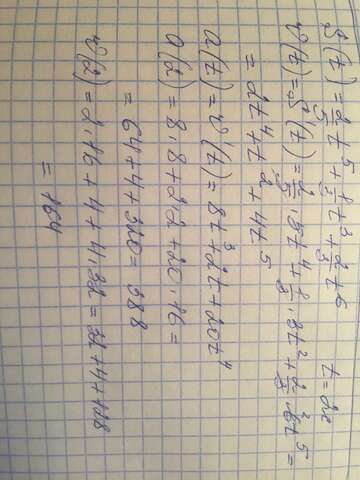 S(t) = 2/5 t⁵ + 1/3 t³ + 2/3 t⁶   t = 2c
v(t) = S'(t) = 2/5 · 5t⁴ + 1/3 · 3t² + 2/3 · 6t⁵ =
= 2t⁴ + t² + 4t⁵
a(t) = v'(t) = 8t³ + 2t + 20t⁴
a(2) = 8·8 + 2·2 + 20·16 =
= 64 + 4 + 320 = 388
v(2) = 2·16 + 4 + 4·32 = 32 + 4 + 128
= 164